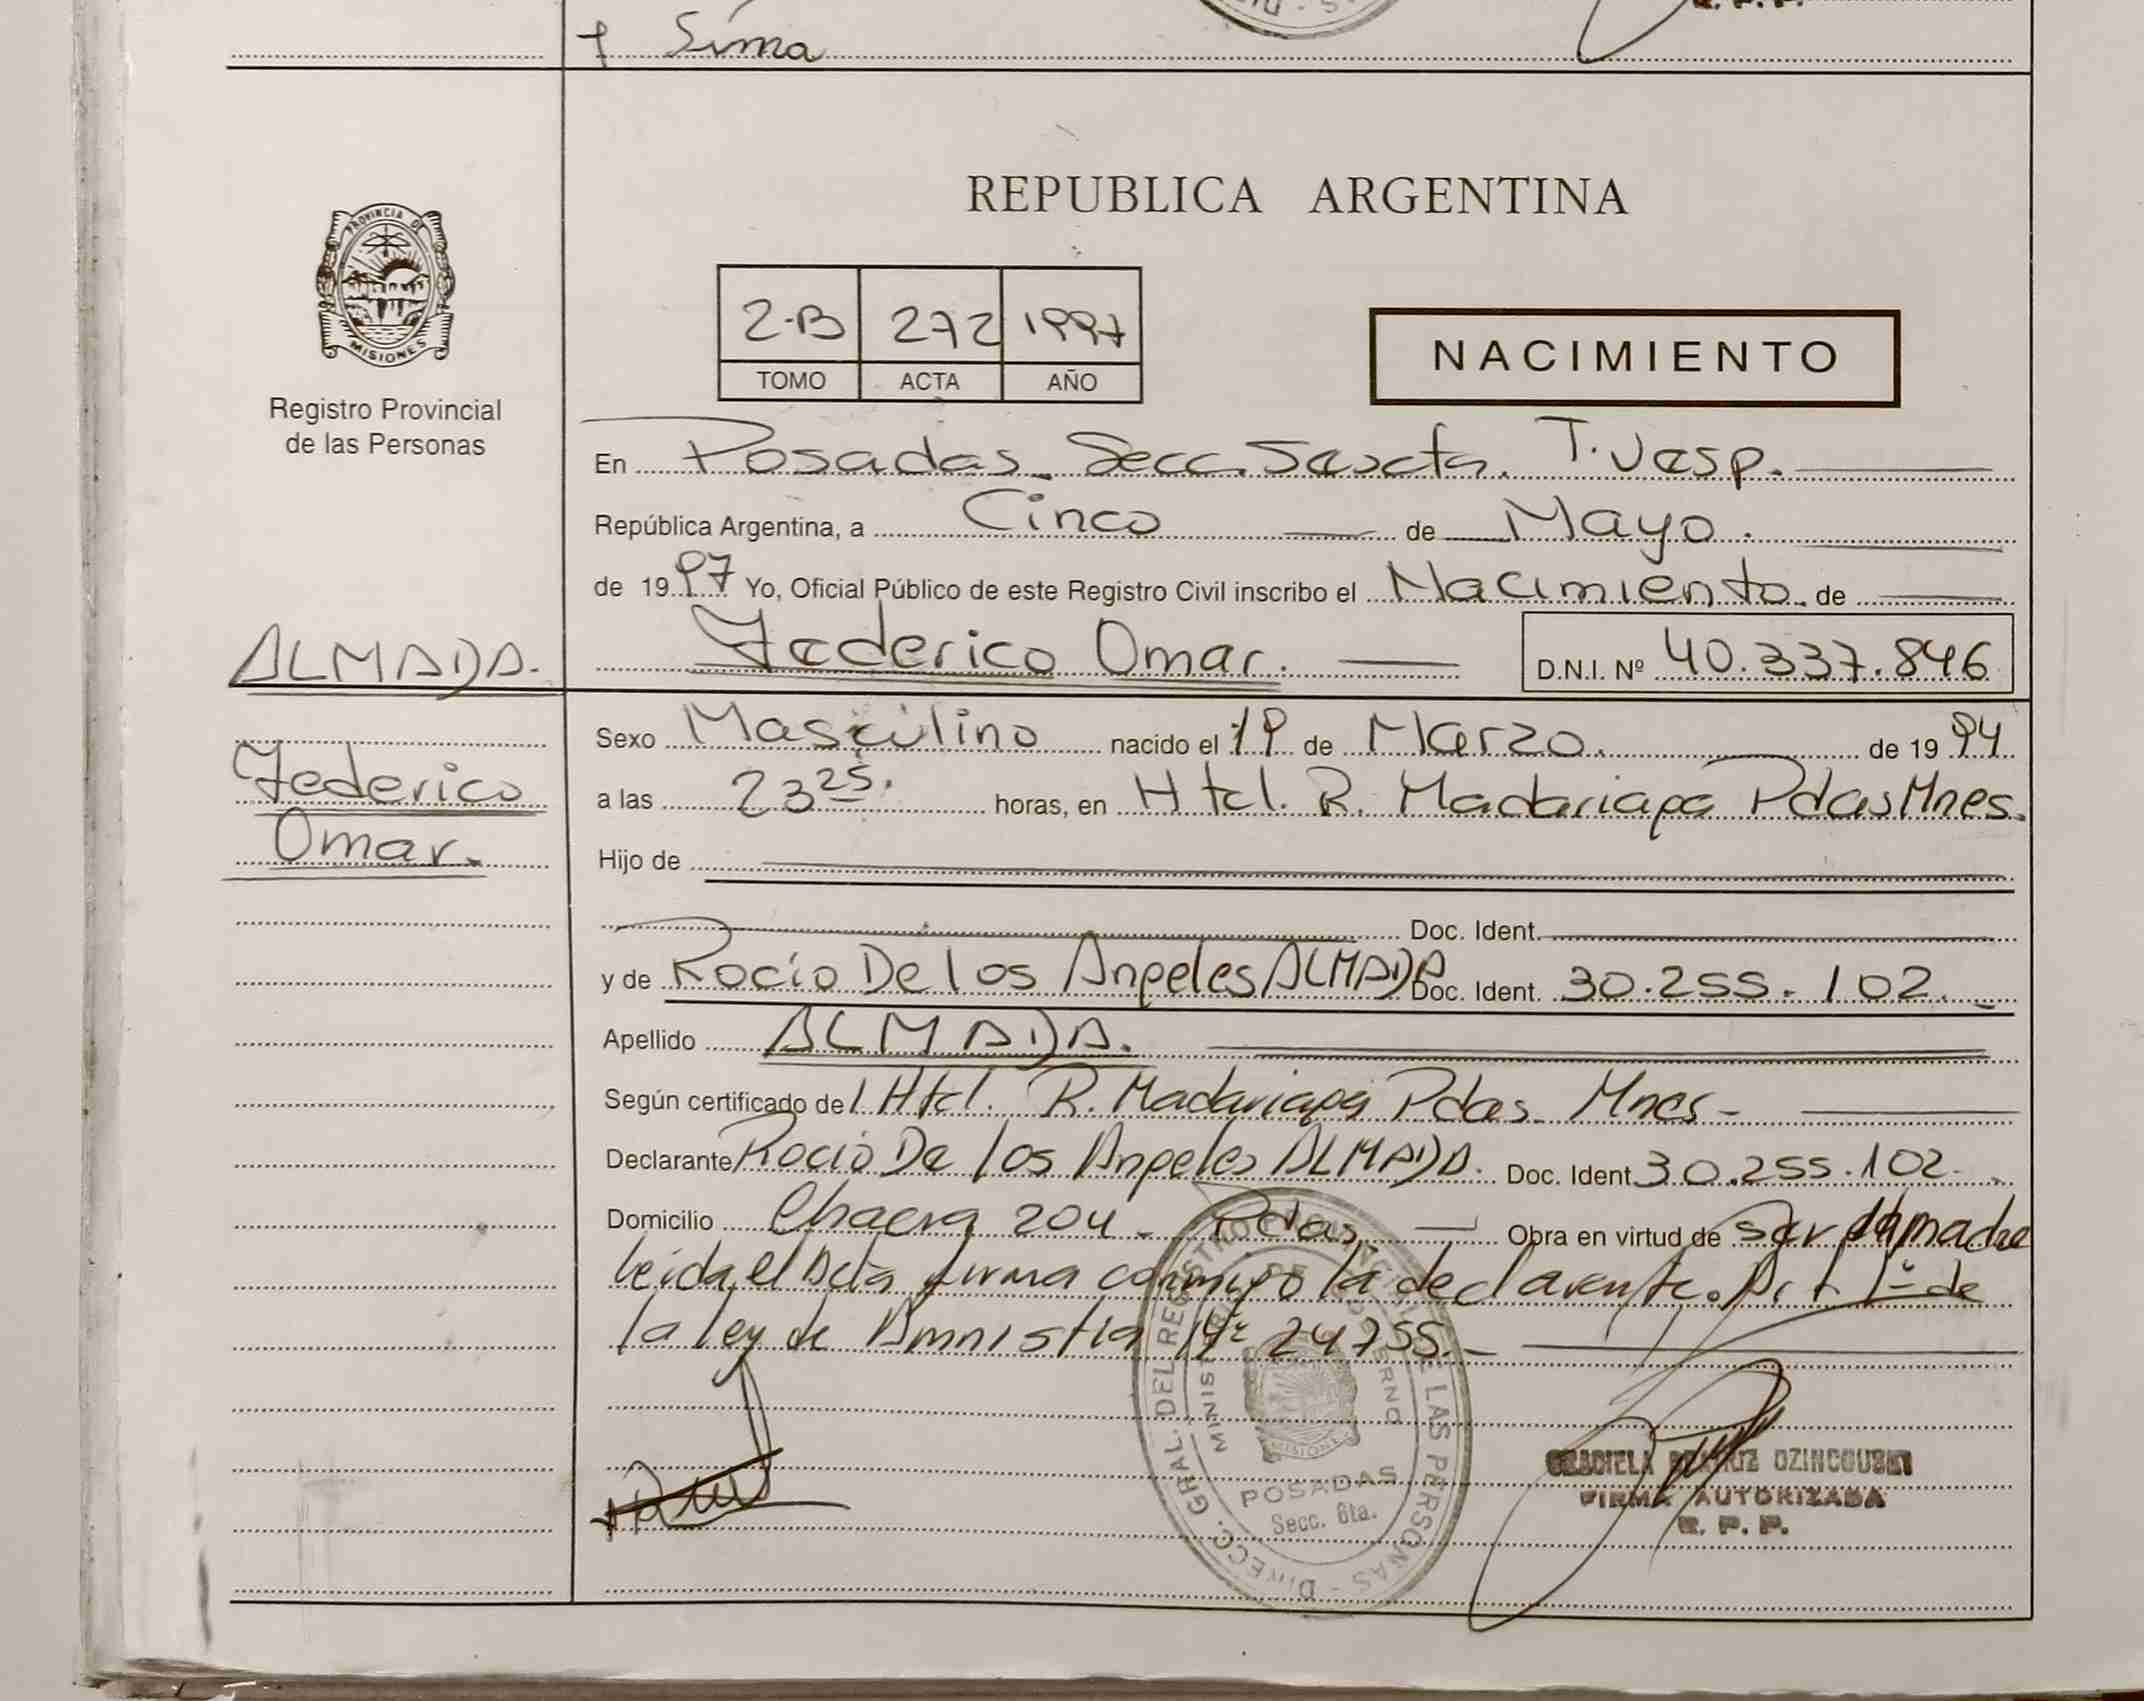 + Sima
R. P. P.
PROVINCIA DE
MISIONES
Registro Provincial
de las Personas
REPUBLICA ARGENTINA
2-B 272 1997
TOMO ACTA AÑO
NACIMIENTO
En Posadas Secc. Sexta. T. Vesp.
República Argentina, a Cinco de Mayo.
de 1997 Yo, Oficial Público de este Registro Civil inscribo el Nacimiento de
ALMADA.
Federico Omar. D.N.I. Nº 40.337.846
Federico
Omar.
Sexo Masculino nacido el 19 de Marzo. de 1994
a las 23 25. horas, en Htal. R. Madariaga Pdas Mnes.
Hijo de
Doc. Ident.
y de Rocio De los Angeles ALMADA Doc. Ident. 30.255.102.
Apellido ALMADA.
Según certificado del Htal. R. Madariaga Pdas. Mnes-
Declarante Rocio De los Angeles ALMADA. Doc. Ident. 30.255.102.
Domicilio Chacra 204 - Pdas. Obra en virtud de ser la madre
leida el Acta firma conmigo la declarante. Art 1º de
la ley de Amnistia Nº 24755.-
DIRECC. GRAL. DEL REGISTRO PROVINCIAL DE LAS PERSONAS
MINISTERIO DE GOBIERNO
MISIONES
POSADAS
Secc. 6ta.
GRACIELA BEATRIZ
FIRMA AUTORIZADA
R. P. P.